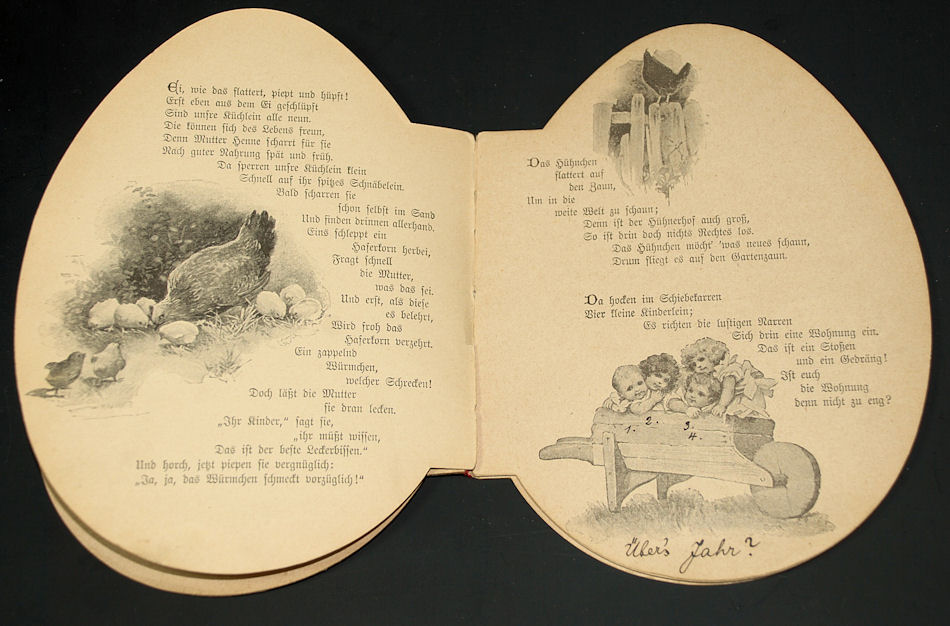 Ei, wie das flattert, piept und hüpft!
Erst eben aus dem Ei geschlüpft
Sind unsre Küchlein alle neun.
Die können sich des Lebens freun,
Denn Mutter Henne scharrt für sie
Nach guter Nahrung spät und früh.
Da sperren unsre Küchlein klein
Schnell auf ihr spitzes Schnäbelein.
Bald scharren sie
schon selbst im Sand
Und finden drinnen allerhand.
Eins schleppt ein
Haferkorn herbei,
Fragt schnell
die Mutter,
was das sei.
Und erst, als diese
es belehrt,
Wird froh das
Haferkorn verzehrt.
Ein zappelnd
Würmchen,
welcher Schrecken!
Doch läßt die Mutter
sie dran lecken.
„Ihr Kinder,“ sagt sie,
„ihr müßt wissen,
Das ist der beste Leckerbissen.“
Und horch, jetzt piepen sie vergnüglich:
„Ja, ja, das Würmchen schmeckt vorzüglich!“
Das Hühnchen
flattert auf
den Zaun,
Um in die
weite Welt zu schaun;
Denn ist der Hühnerhof auch groß,
So ist drin doch nichts Rechtes los.
Das Hühnchen möcht' 'was neues schaun,
Drum fliegt es auf den Gartenzaun.
Da hocken im Schiebekarren
Vier kleine Kinderlein;
Es richten die lustigen Narren
Sich drin eine Wohnung ein.
Das ist ein Stoßen
und ein Gedräng!
Ist euch
die Wohnung
denn nicht zu eng?
1. 2. 3.
4.
Über's Jahr?